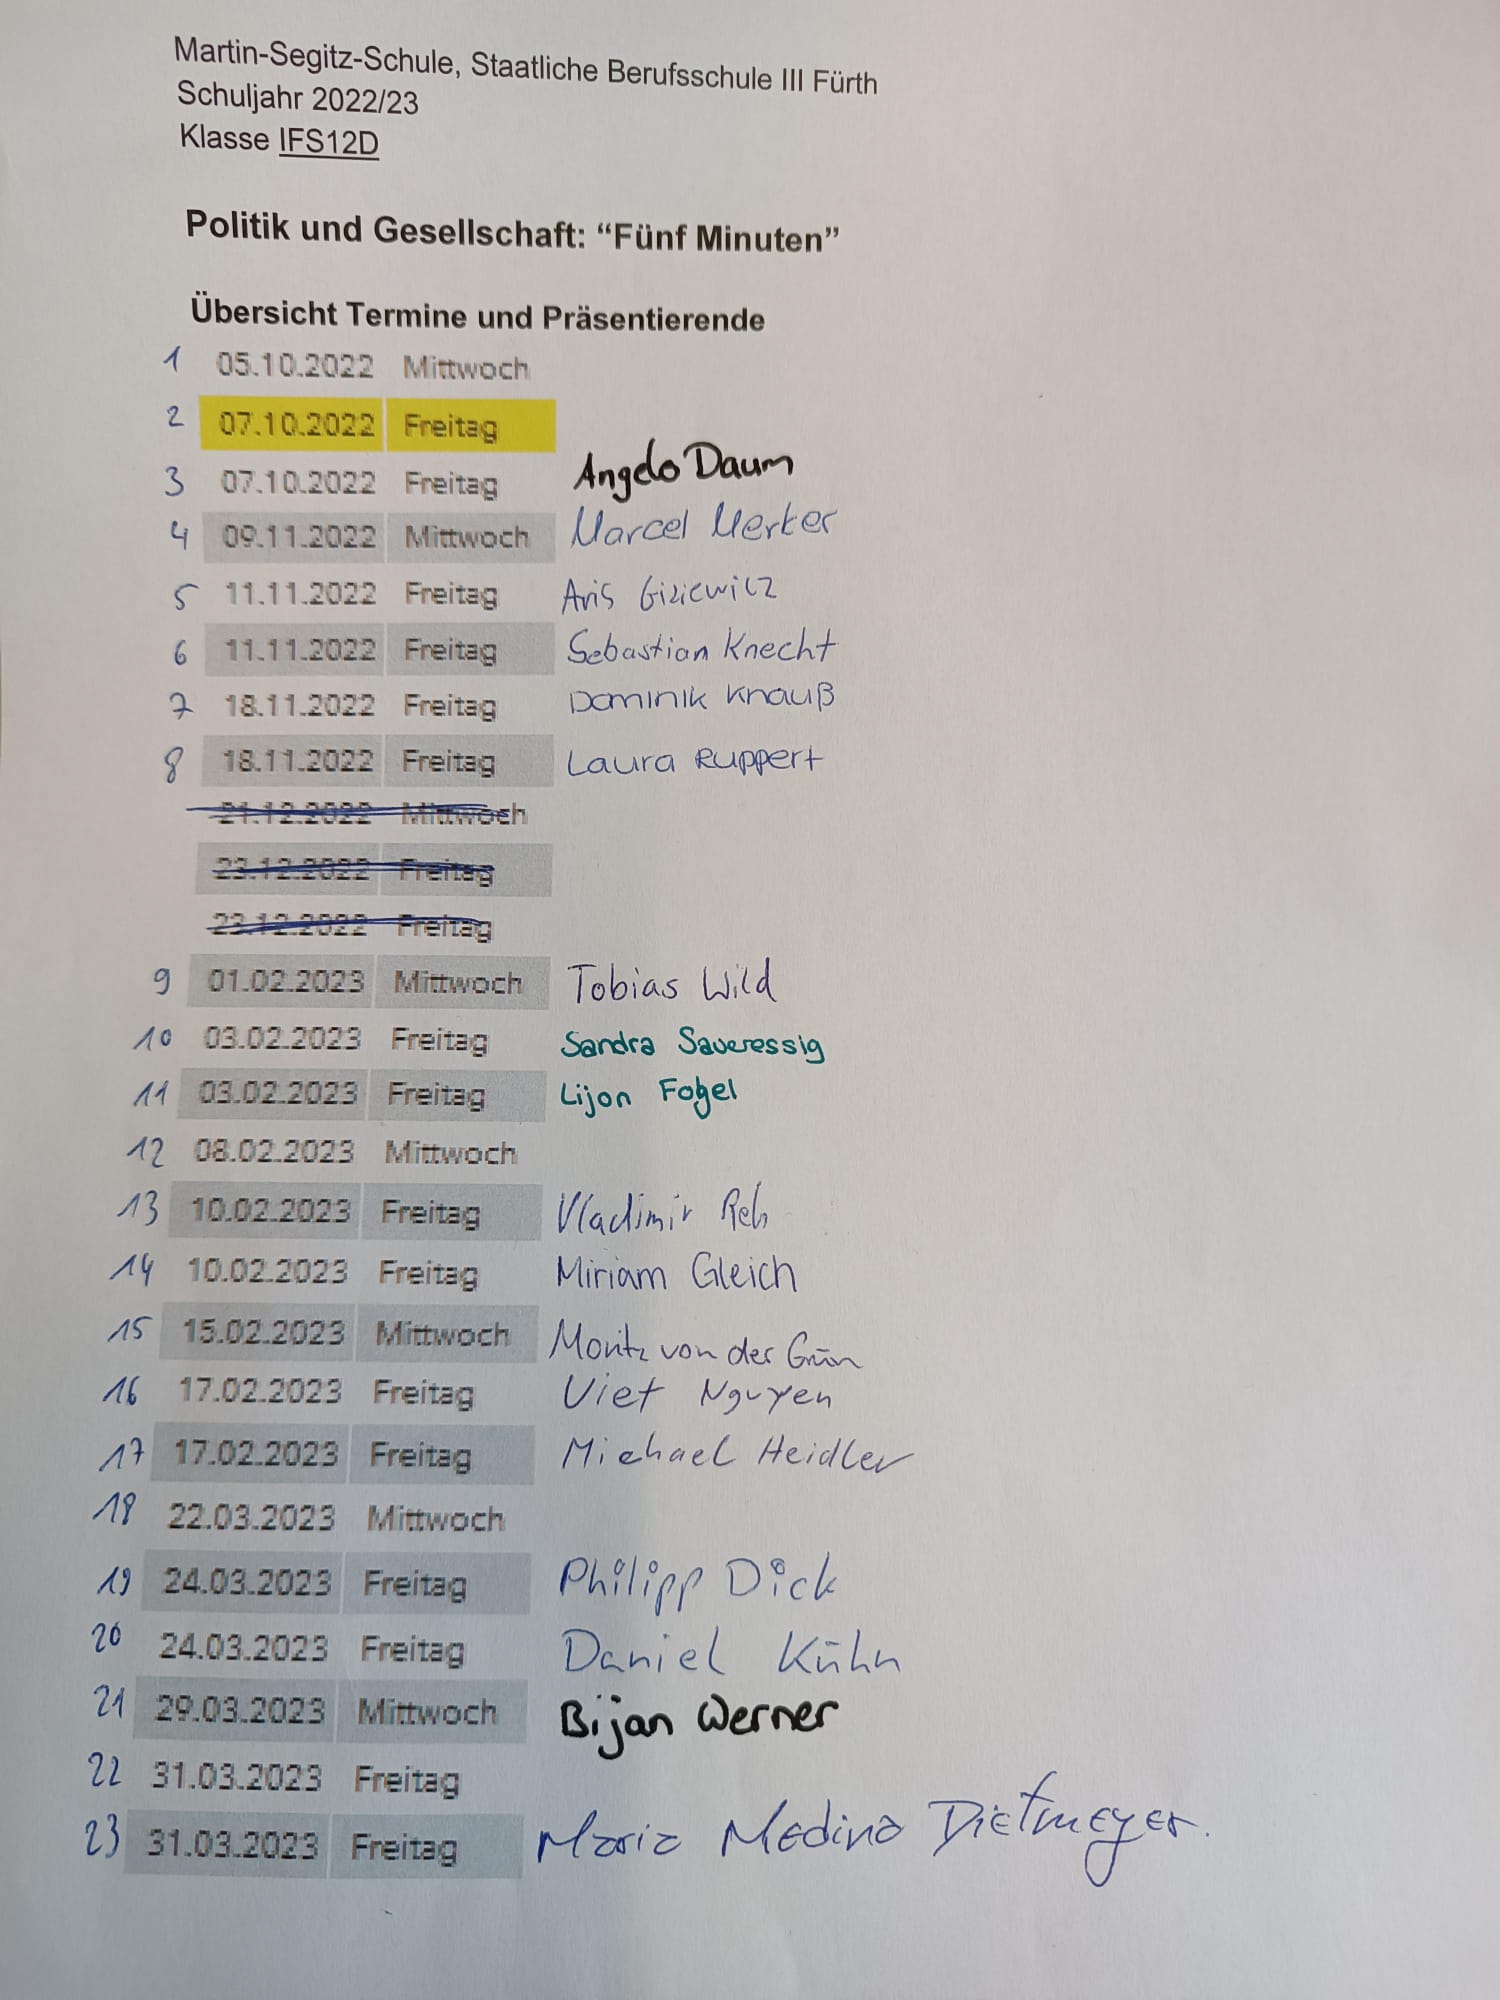 Martin-Segitz-Schule, Staatliche Berufsschule III Fürth
Schuljahr 2022/23
Klasse IFS12D
Politik und Gesellschaft: “Fünf Minuten”
Übersicht Termine und Präsentierende
1 05.10.2022 Mittwoch
2 07.10.2022 Freitag
3 07.10.2022 Freitag Angelo Daum
4 09.11.2022 Mittwoch Marcel Merker
5 11.11.2022 Freitag Aris Giziewicz
6 11.11.2022 Freitag Sebastian Knecht
7 18.11.2022 Freitag Dominik Knauß
8 18.11.2022 Freitag Laura Ruppert
21.12.2022 Mittwoch
23.12.2022 Freitag
23.12.2022 Freitag
9 01.02.2023 Mittwoch Tobias Wild
10 03.02.2023 Freitag Sandra Saueressig
11 03.02.2023 Freitag Lijon Fogel
12 08.02.2023 Mittwoch
13 10.02.2023 Freitag Vladimir Reh
14 10.02.2023 Freitag Miriam Gleich
15 15.02.2023 Mittwoch Moritz von der Grün
16 17.02.2023 Freitag Viet Nguyen
17 17.02.2023 Freitag Michael Heidler
18 22.03.2023 Mittwoch
19 24.03.2023 Freitag Philipp Dick
20 24.03.2023 Freitag Daniel Kühn
21 29.03.2023 Mittwoch Bijan Werner
22 31.03.2023 Freitag
23 31.03.2023 Freitag Maria Medina Dietmeyer.